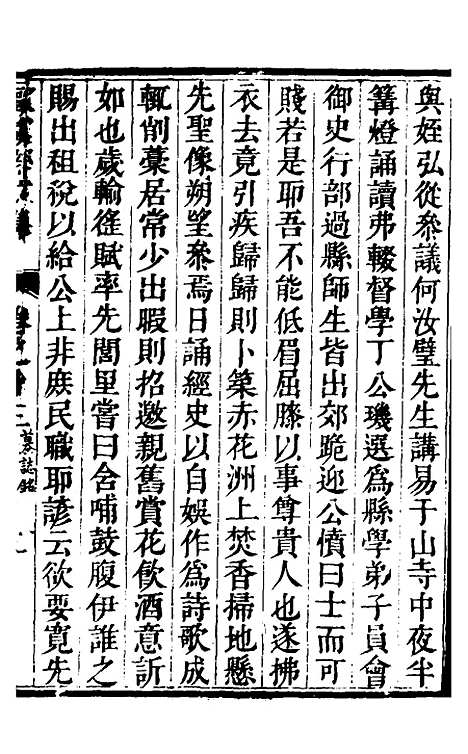 與姪弘從參議何汝璧先生講易于山寺中夜半
篝燈誦讀弗輟督學丁公璣選爲縣學弟子員會
御史行部過縣師生皆出郊跪迎公憤曰士而可
賤若是耶吾不能低眉屈膝以事尊貴人也遂拂
衣去竟引疾歸歸則卜築赤花洲上焚香掃地懸
先聖像朔望參焉日誦經史以自娛作爲詩歌成
輒削藁居常少出暇則招邀親舊賞花飲酒意訢
如也歲輸徭賦率先閭里嘗曰含哺鼓腹伊誰之
賜出租稅以給公上非庶民職耶諺云欲要寬先
墓誌銘